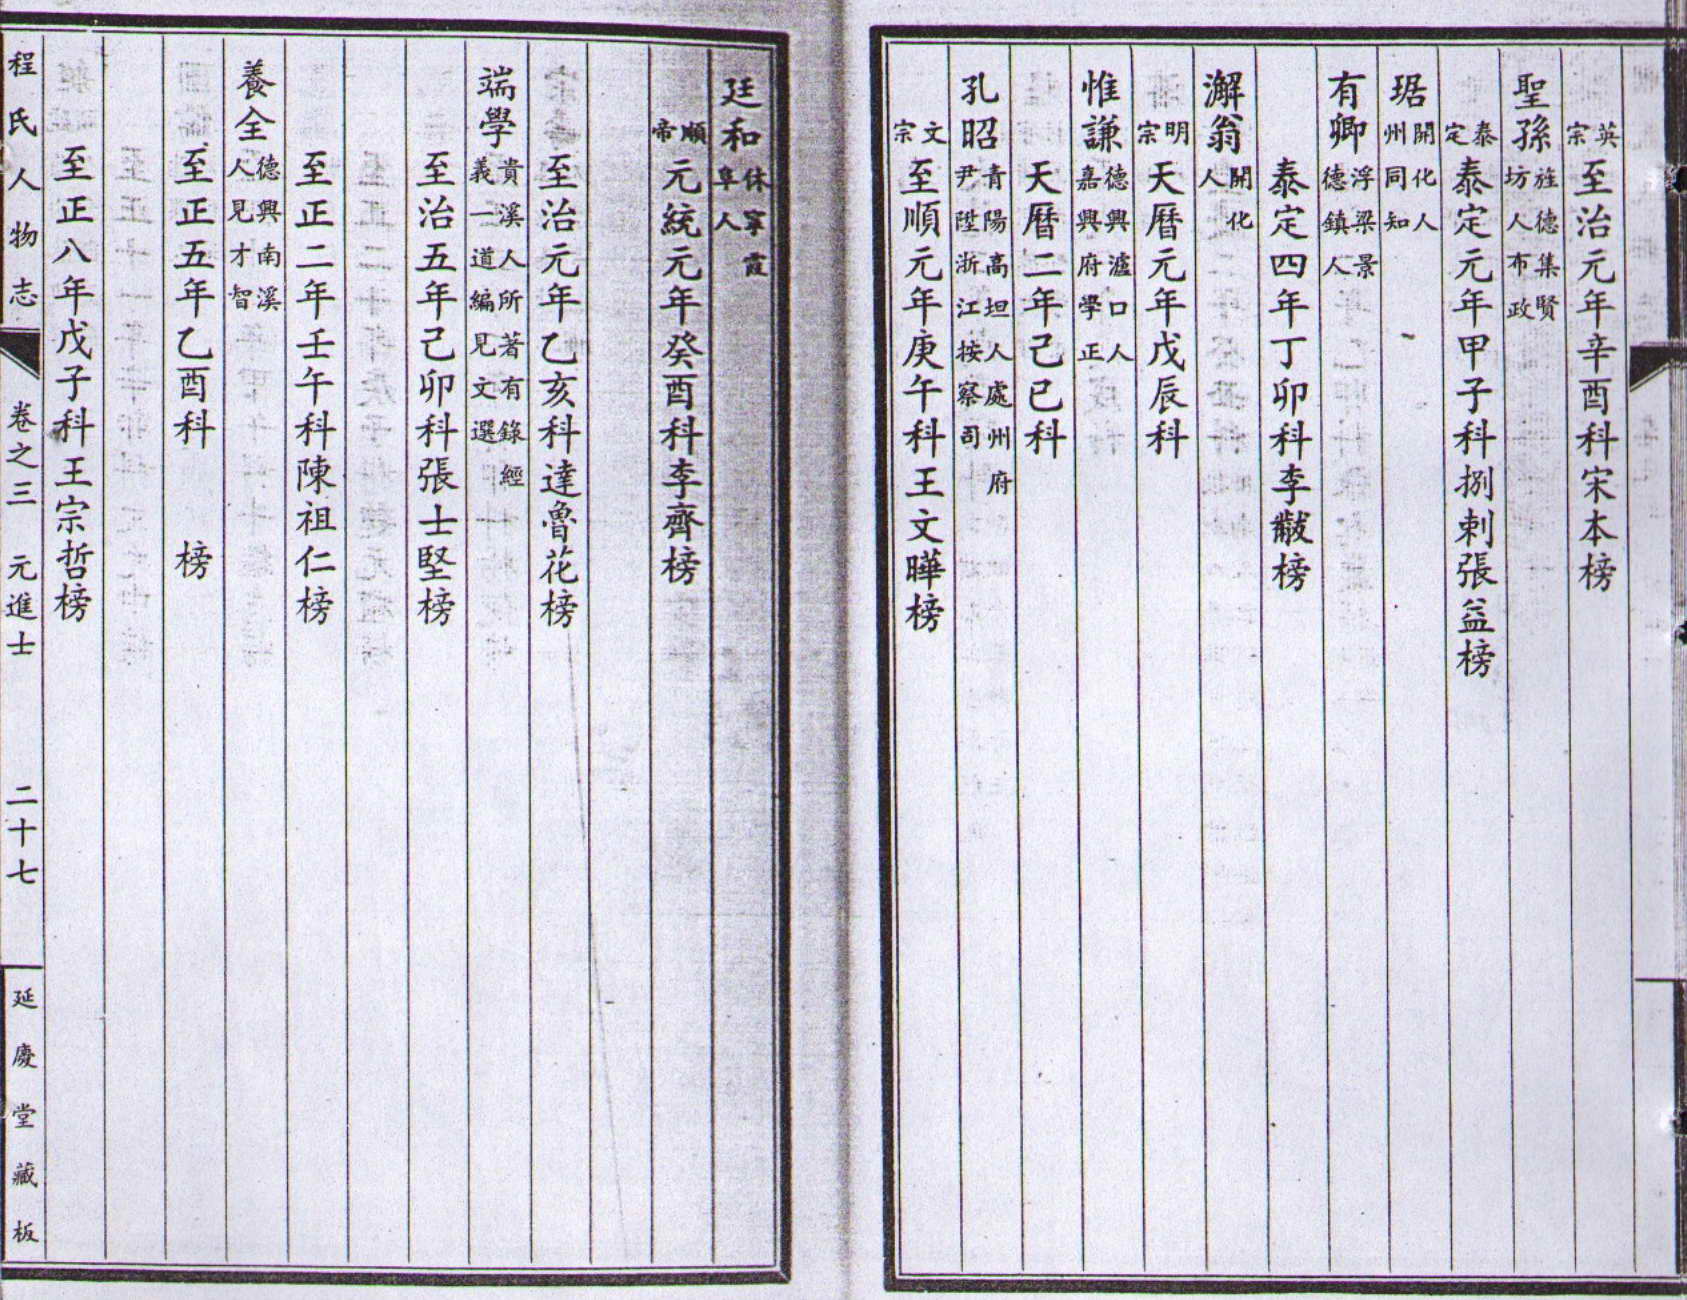 英宗至治元年辛酉科宋本榜
聖孫旌德集賢坊人布政
泰定泰定元年甲子科捌剌張益榜
琚開化人州同知
有卿浮梁景德鎮人
泰定四年丁卯科李黻榜
澥翁開化人
明宗天曆元年戊辰科
惟謙德興瀘口人嘉興府學正
天曆二年己巳科
孔昭青陽高坦人處州府尹陞浙江按察司
文宗至順元年庚午科王文曄榜
廷和休寧霞阜人
順帝元統元年癸酉科李齊榜
至治元年乙亥科達魯花榜
端學貴溪人所著有錄經義一道編見文選
至治五年己卯科張士堅榜
至正二年壬午科陳祖仁榜
養全德興南溪人見才智
至正五年乙酉科　榜
至正八年戊子科王宗哲榜
程氏人物志　卷之三　元進士　二十七　延慶堂藏板